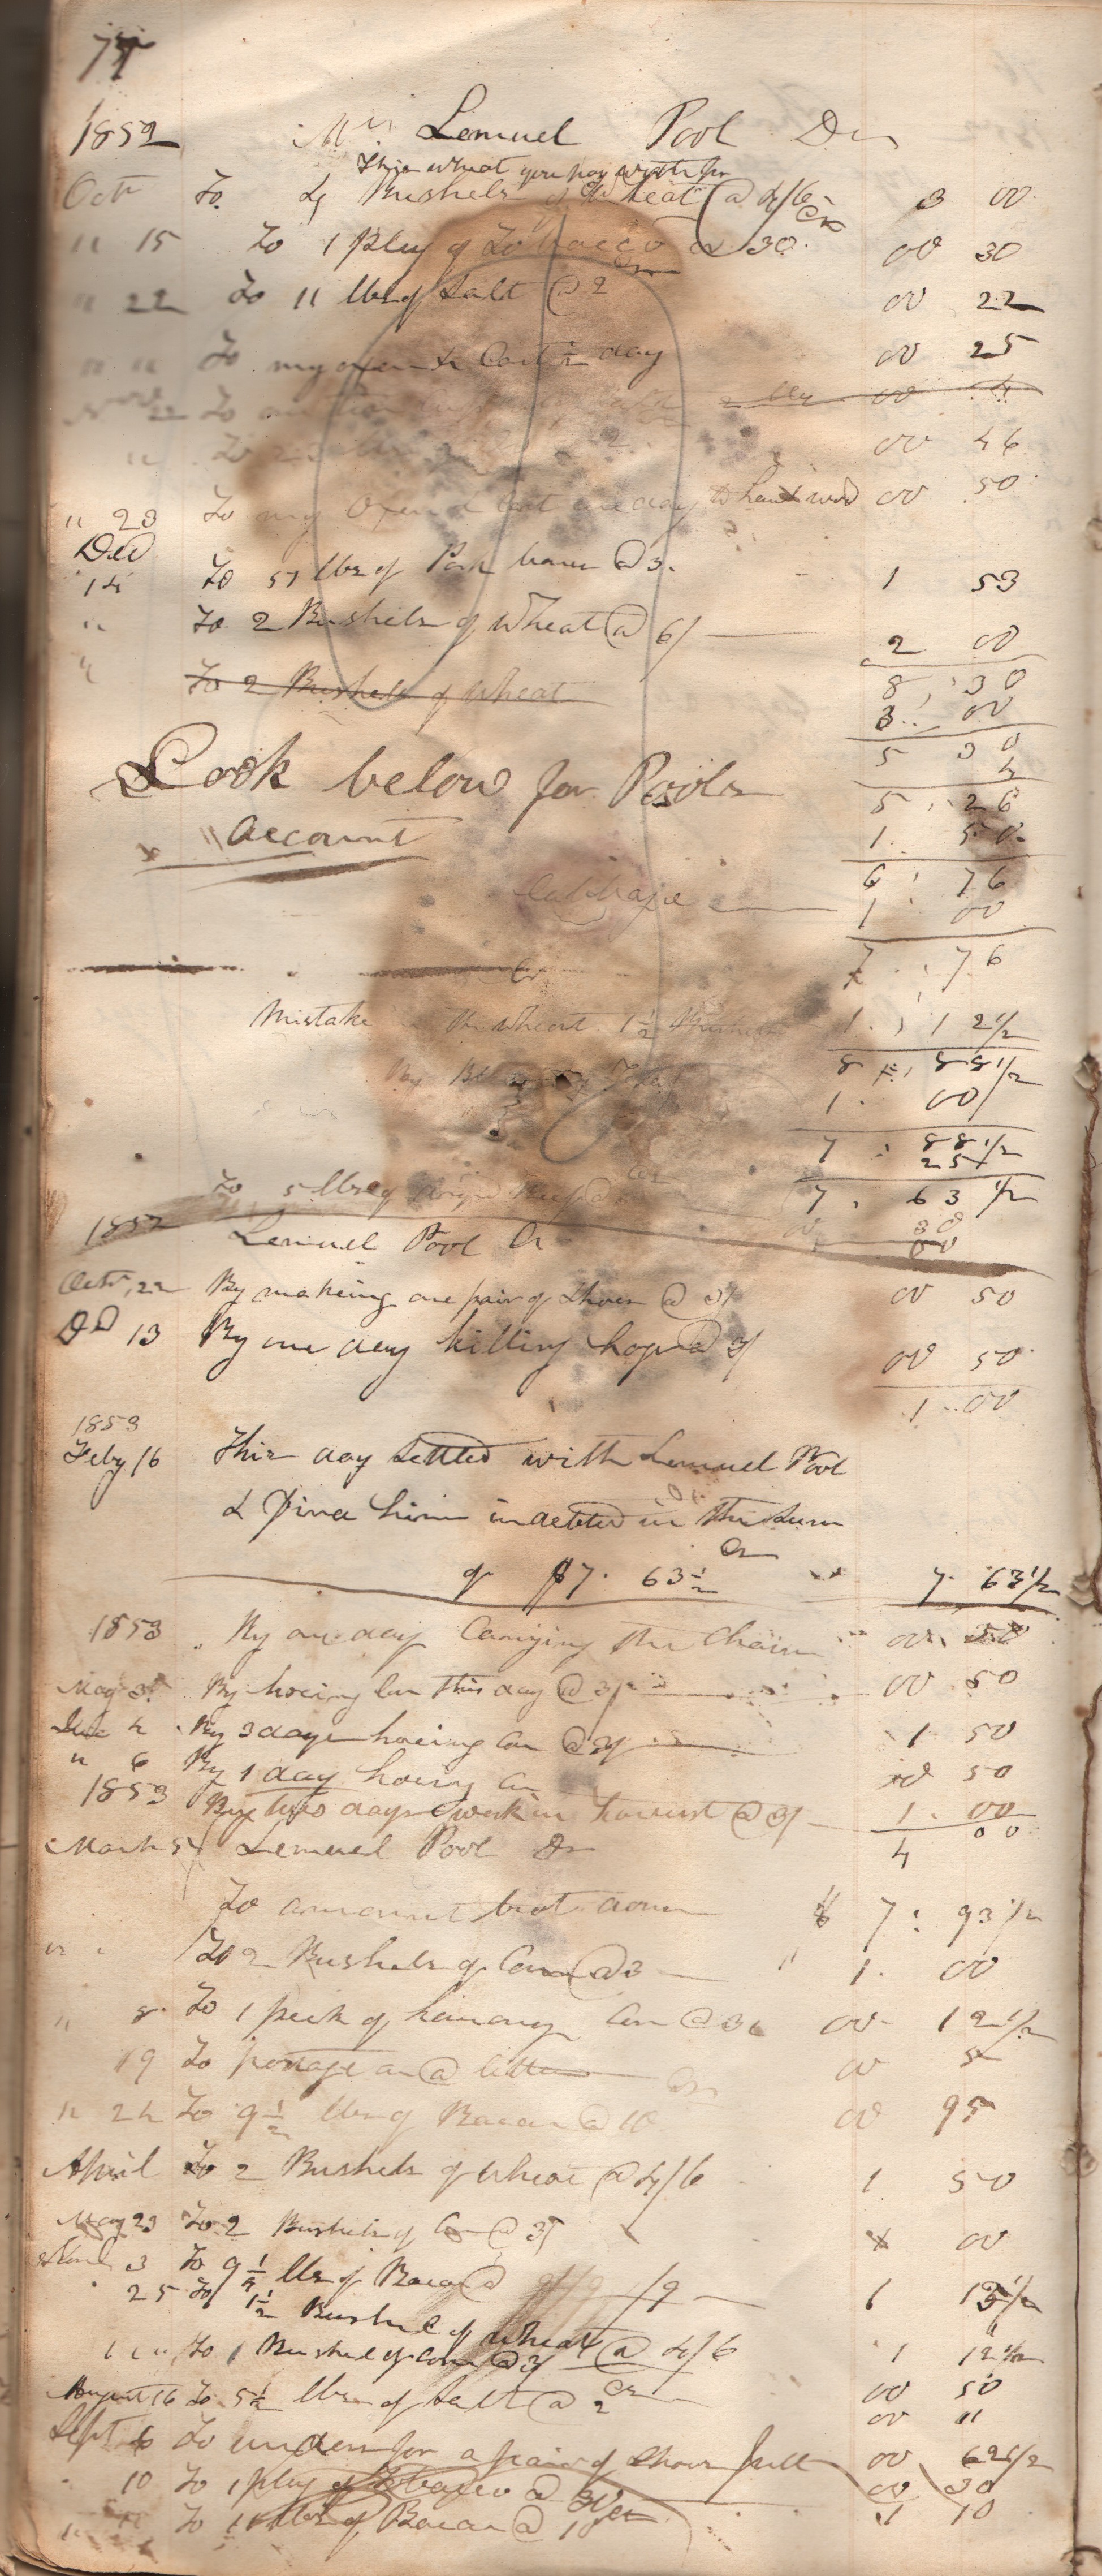 77
1852 Mr Lemuel Pool Dr
This wheat you pay with for
Oct To 4 Bushels of Wheat @ 4/6 3 00
" 15 To 1 plug of Tobacco @ 30 00 30
" 22 To 11 lbs of Salt @ 2 00 22
" " To my oxen & Cart ½ day 00 25
22 To 00 4
" To 00 46
" 23 To my Oxen & Cart one day to haul wood 00 50
Dec
14 To 51 lbs of Pork bones @ 3 1 53
" To 2 Bushels of Wheat @ 6/ 2 00
" To 2 Bushels of Wheat 8 30
3 00
5 30
4
Look below for Pools 5 26
account 1 50
6 76
Cabbage 1 00
7 76
Cr
Mistake in the wheat 1½ Bushels 1 12½
8 88½
By 1 00
7 88½
25
To 5 lbs of @ 7 63½
00 30
1852 Lemuel Pool Cr 00
Octr 22 By making one pair of Shoes @ 3/ 00 50
Dec 13 By one day killing hogs @ 3/ 00 50
1 00
1853
Feby 16 This day Settled with Lemuel Pool
& find him indebted in the Sum
of $7. 63½ 7 63½
1853 By one day Carrying the Chain 00 50
May 3 By hoeing Corn this day @ 3/ 00 50
June 2 By 3 days hoeing Corn @ 3/ 1 50
" 6 By 1 day hoeing Corn 00 50
1853 By two days work in harvest @ 3/ 1 00
March 5 Lemuel Pool Dr 4 00
To amount brot down $ 7 93½
" To 2 Bushels of Corn @ 3 1 00
" 8 To 1 peck of hominy Corn @ 3 00 12½
19 To postage on @ letter 00 5
" 24 To 9½ lbs of Bacon @ 10 00 95
April To 2 Bushels of Wheat @ 4/6 1 50
May 23 To 2 Bushels of Corn @ 3/ 1 00
3 To 9½ lbs of Bacon @ /9 1
25 To 1½ Bushels of Wheat @ 4/6 1 12½
" " To 1 Bushel of Corn @ 3/ 00 50
August 16 To 5½ lbs of Salt @ 2 00 11
Sept 6 To for a pair of Shoes full 00 62½
10 To 1 plug of Tobacco @ 30 00 30
" To 11 lbs of Bacon @ 10 1 10